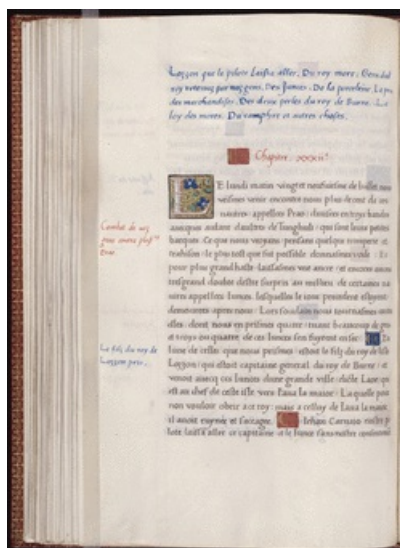 Lozzon que le pilote laissa aller. Du roy more. Gens du
roy retenus par noz gens. Des Juncs. De la porcelene. La pris
des marchandises. Des deux perles du roy de Burne. La
loy des mores. Du camphre et autres choses.
Chapitre. xxxii.
E lundi matin vingt et neufuiesme de Juillet nous
veismes venir encontre nous plus de cent de ces
nauires appellees Prao: diuisees en troys bandes
auecques autant dautres de Tunghuli: qui sont leurs petites
barques. Ce que nous voyans: pensans quelque tromperie et
trahison: le plus tost que fut possible donnasmes voile: Et
pour plus grand haste laissasmes vne ancre: et encores auons
tresgrand doubte destre surpris au millieu de certaines na
uires appellees Iuncs. lesquelles le iour precedent estoient
demourees apres nous. Lors soudain nous tournasmes contre
elles: dont nous en prismes quatre: tuant beaucoup de gens
et troys ou quatre de ces iuncs sen fuyrent en sec. En
lune de celles que nous prismes: estoit le filz du roy de lisle
Lozzon: qui estoit capitaine general du roy de Burne: et
venoit auecq ces iuncs dune grande ville dicte Laoe qui
est au chef de ceste isle vers Iaua la maior: Laquelle pour
non vouloir obeir a ce roy: mais a celluy de Iaua la maior
il auoit ruynee et saccagee. Iehan Caruaio nostre pi
lote laissa aller ce capitaine et le Iunc sans nostre consentement
Combat de noz
gens contre plus.rs
Prao
Le filz du roy de
Lozzon pris.